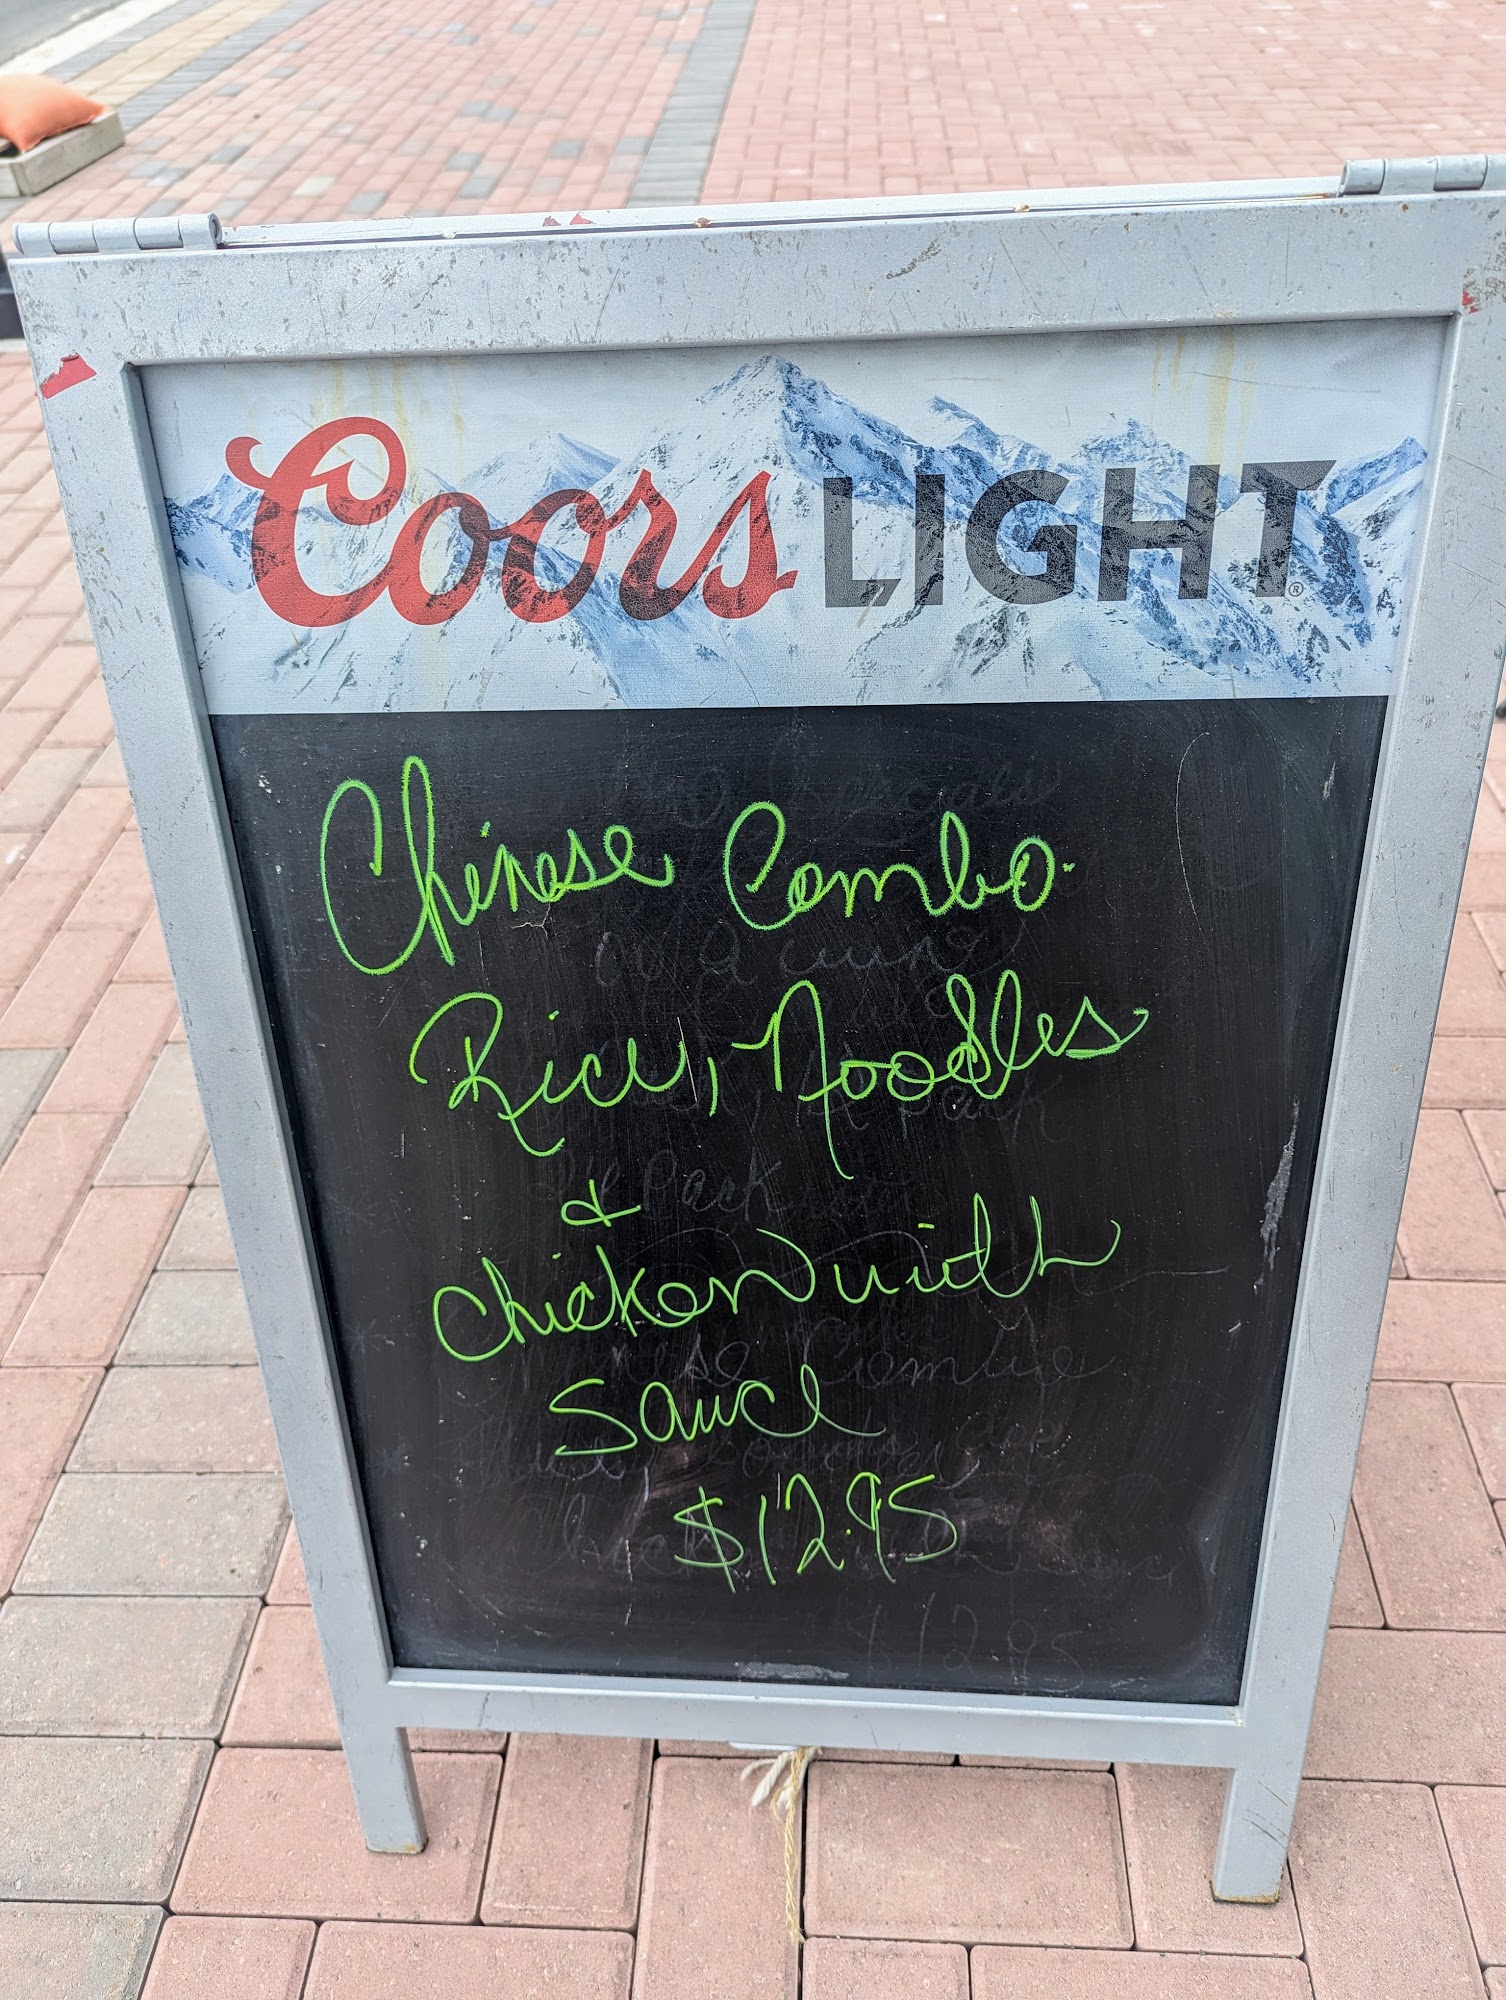 Coors LIGHT®
Chinese Combo.
Rice, Noodles
&
Chicken with
Sauce
$12.95
$12.95